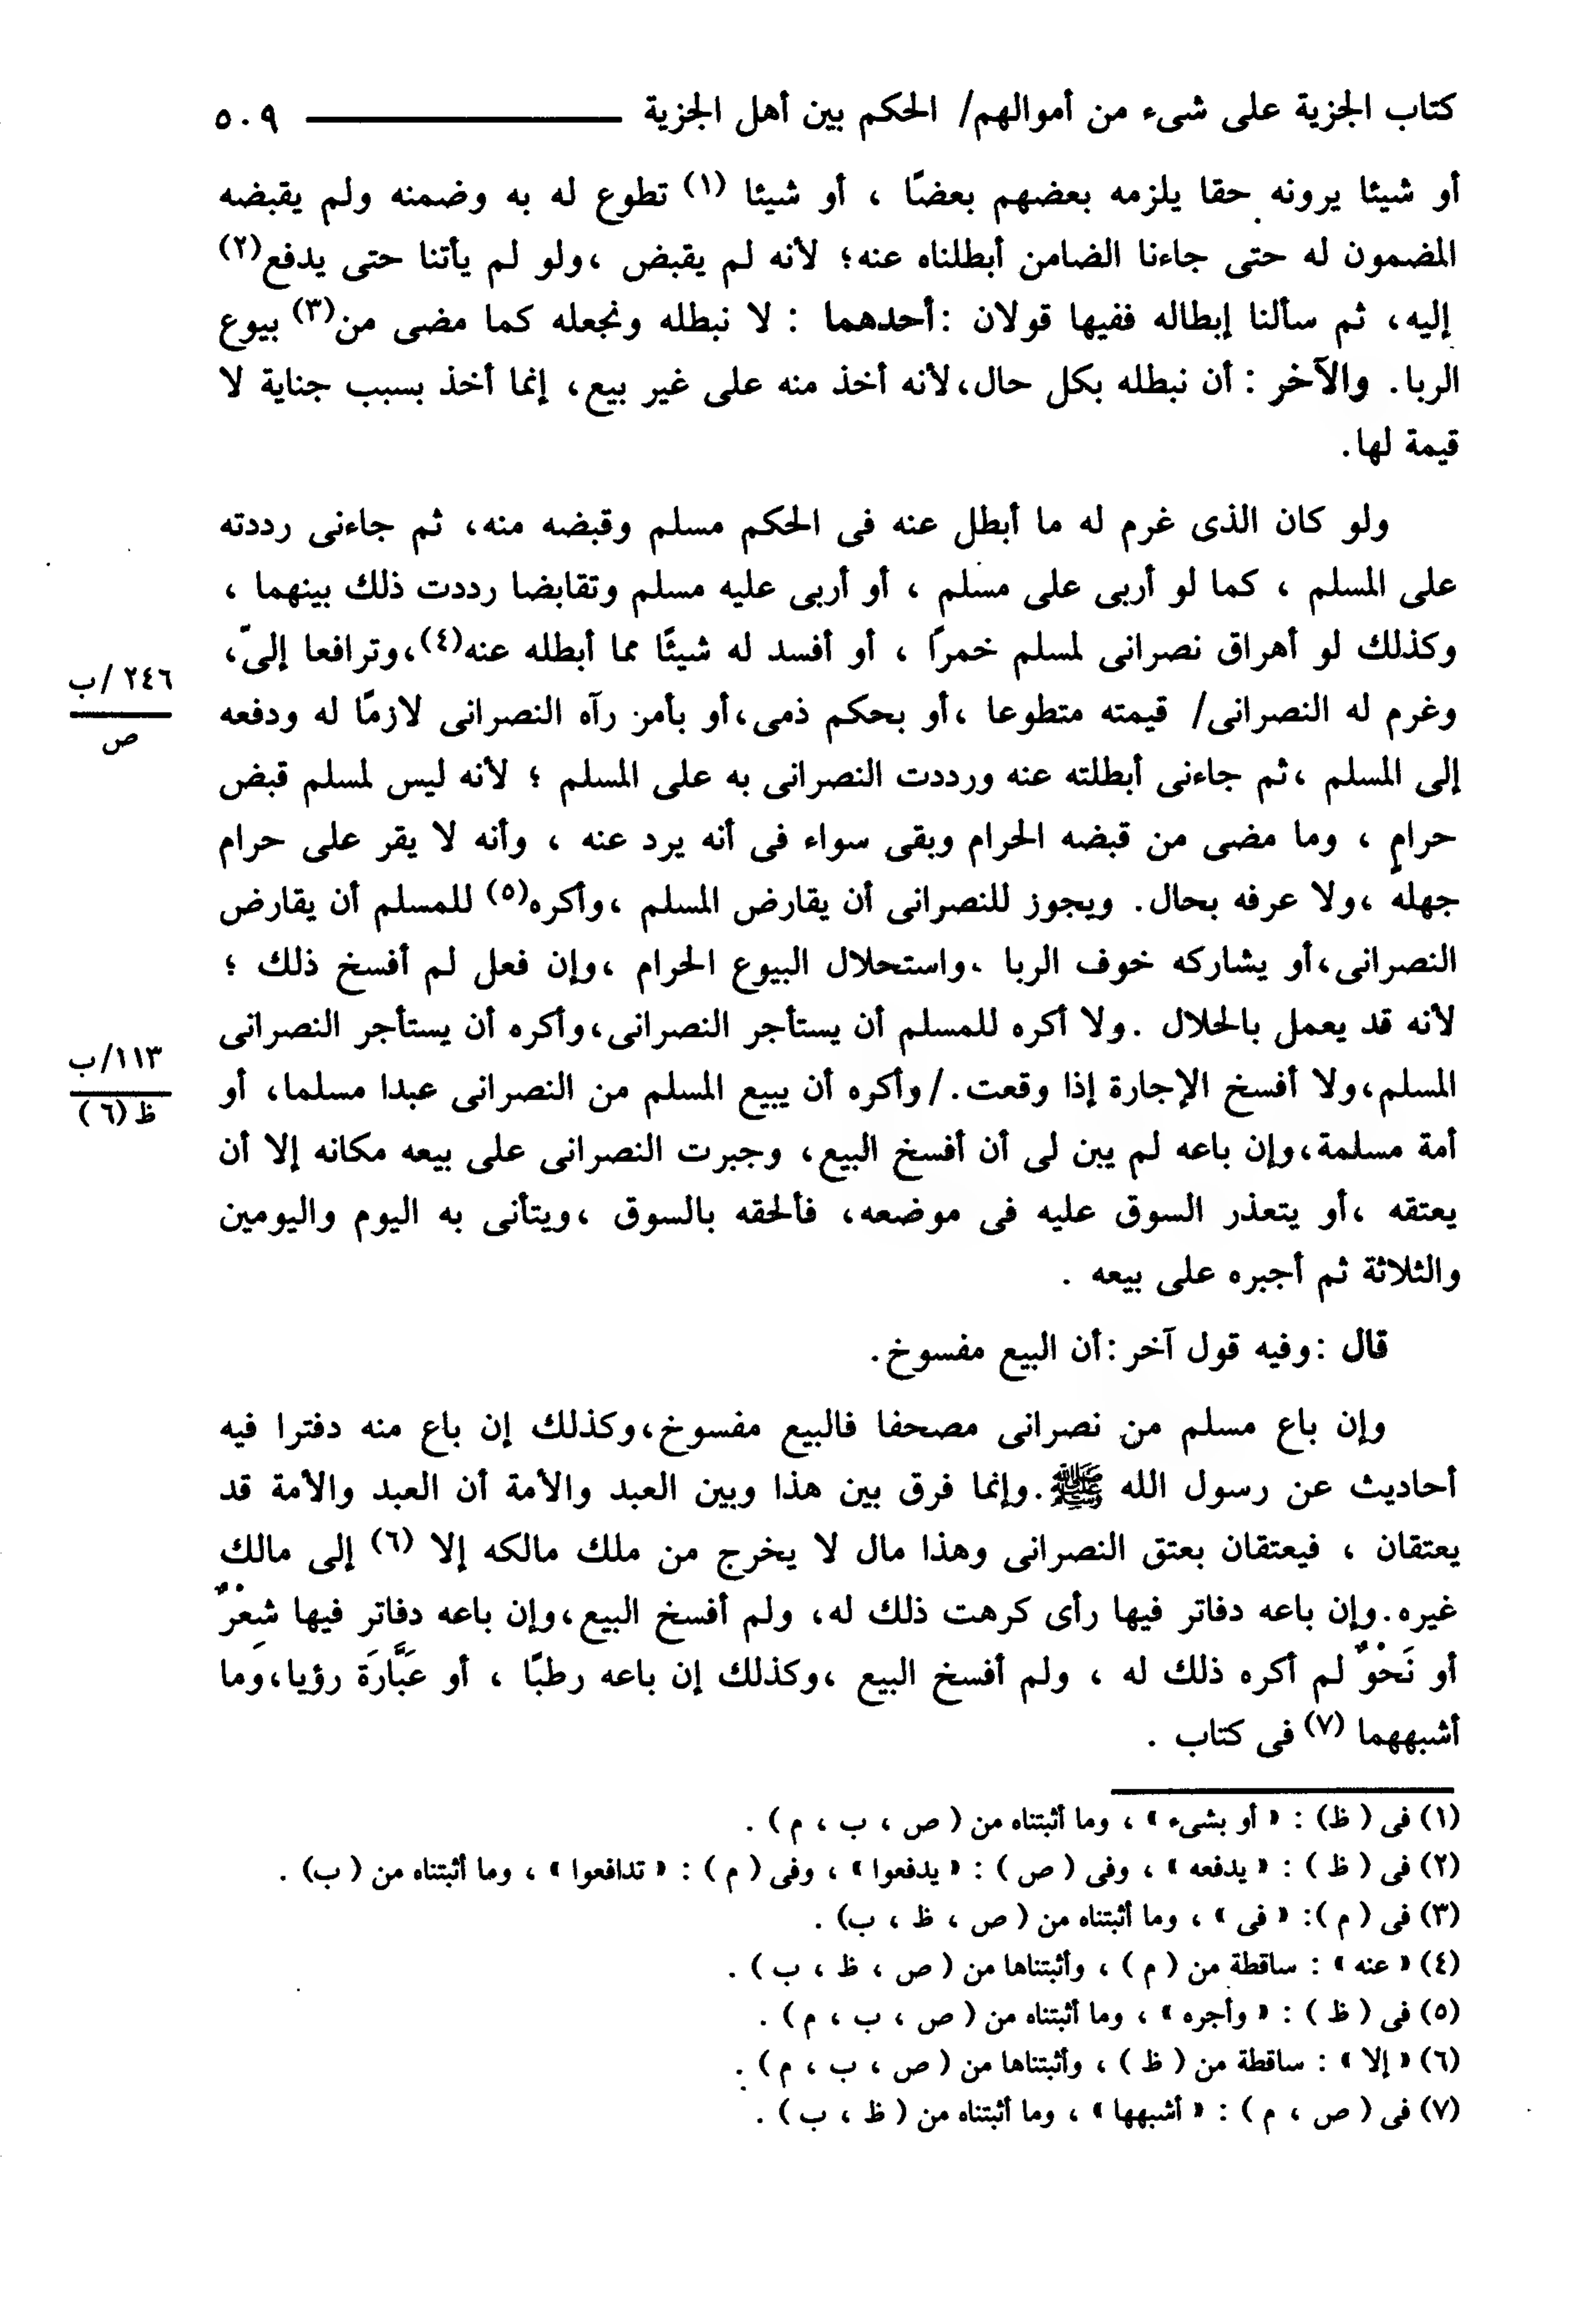 كتاب الجزية على شىء من أموالهم/ الحكم بين أهل الجزية ٥٠٩
أو شيئا يرونه حقا يلزمه بعضهم بعضًا ، أو شيئا (١) تطوع له به وضمنه ولم يقبضه
المضمون له حتى جاءنا الضامن أبطلناه عنه؛ لأنه لم يقبض ،ولو لم يأتنا حتى يدفع(٢)
إليه، ثم سألنا إبطاله ففيها قولان :أحدهما : لا نبطله ونجعله كما مضى من(٣) بيوع
الربا. والآخر : أن نبطله بكل حال،لأنه أخذ منه على غير بيع، إنما أخذ بسبب جناية لا
قيمة لها.
ولو كان الذى غرم له ما أبطل عنه فى الحكم مسلم وقبضه منه، ثم جاءنى رددته
على المسلم ، كما لو أربى على مسلم ، أو أربى عليه مسلم وتقابضا رددت ذلك بينهما ،
وكذلك لو أهراق نصرانى لمسلم خمرًا ، أو أفسد له شيئًا مما أبطله عنه(٤)،وترافعا إلىّ،
٢٤٦ /ب
ص
وغرم له النصرانى/ قيمته متطوعا ،أو بحكم ذمى،أو بأمر رآه النصرانى لازمًا له ودفعه
إلى المسلم ،ثم جاءنى أبطلته عنه ورددت النصرانى به على المسلم ؛ لأنه ليس لمسلم قبض
حرامٍ ، وما مضى من قبضه الحرام وبقى سواء فى أنه يرد عنه ، وأنه لا يقر على حرام
جهله ،ولا عرفه بحال. ويجوز للنصرانى أن يقارض المسلم ،وأكره(٥) للمسلم أن يقارض
النصرانى،أو يشاركه خوف الربا ،واستحلال البيوع الحرام ،وإن فعل لم أفسخ ذلك ؛
لأنه قد يعمل بالحلال .ولا أكره للمسلم أن يستأجر النصرانى،وأكره أن يستأجر النصرانى
١١٣/ب
ظ(٦)
المسلم،ولا أفسخ الإجارة إذا وقعت./وأكره أن يبيع المسلم من النصرانى عبدا مسلما، أو
أمة مسلمة،وإن باعه لم يبن لى أن أفسخ البيع، وجبرت النصرانى على بيعه مكانه إلا أن
يعتقه ،أو يتعذر السوق عليه فى موضعه، فألحقه بالسوق ،ويتأنى به اليوم واليومين
والثلاثة ثم أجبره على بيعه .
قال :وفيه قول آخر:أن البيع مفسوخ.
وإن باع مسلم من نصرانى مصحفا فالبيع مفسوخ،وكذلك إن باع منه دفترا فيه
أحاديث عن رسول الله ﷺ.وإنما فرق بين هذا وبين العبد والأمة أن العبد والأمة قد
يعتقان ، فيعتقان بعتق النصرانى وهذا مال لا يخرج من ملك مالكه إلا (٦) إلى مالك
غيره.وإن باعه دفاتر فيها رأى كرهت ذلك له، ولم أفسخ البيع،وإن باعه دفاتر فيها شِعْرٌ
أو نَحْوٌ لم أكره ذلك له ، ولم أفسخ البيع ،وكذلك إن باعه رطبًا ، أو عَبَّارَة رؤيا،وَما
أشبههما (٧) فى كتاب .
(١) فى ( ظ) : « أو بشىء » ، وما أثبتناه من ( ص ، ب ، م ) .
(٢) فى ( ظ ) : « يدفعه » ، وفى ( ص ) : « يدفعوا » ، وفى ( م ) : « تدافعوا » ، وما أثبتناه من ( ب) .
(٣) فى ( م ): « فى » ، وما أثبتناه من ( ص ، ظ ، ب) .
(٤) « عنه » : ساقطة من ( م ) ، وأثبتناها من ( ص ، ظ ، ب ) .
(٥) فى ( ظ ) : « وأجره » ، وما أثبتناه من ( ص ، ب ، م ) .
(٦) « إلا » : ساقطة من ( ظ ) ، وأثبتناها من ( ص ، ب ، م ) .
(٧) فى ( ص ، م ) : « أشبهها » ، وما أثبتناه من ( ظ ، ب ) .